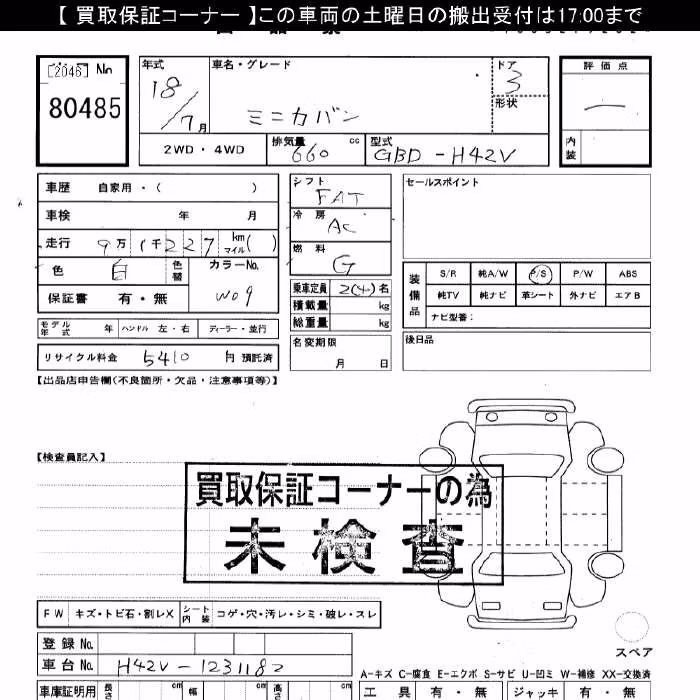 【 買取保証コーナー 】この車両の土曜日の搬出受付は17:00まで
[2046] No
80485
年式 車名・グレード ドア 評価点
18/7月 ミニカバン 3 一
形状
2WD・4WD 排気量 660 cc 型式 GBD-H42V 内装
車歴 自家用・( ) シフト FAT セールスポイント
車検 年 月 冷房 AC
走行 9万1千227 km マイル( ) 燃料 G
色 白 色替 カラーNo. W09 乗車定員 2(4)名
装備品 S/R 純A/W P/S P/W ABS
保証書 有・無 積載量 kg 純TV 純ナビ 革シート 外ナビ エアB
総重量 kg ナビ型番:
モデル年式 年 ハンドル 左・右 ディーラー・並行
名変期限 月 日 後日品
リサイクル料金 5410 円 預託済
【出品店申告欄(不良箇所・欠品・注意事項等)】
【検査員記入】
買取保証コーナーの為
未検査
FW キズ・トビ石・割レX シート内装 コゲ・穴・汚レ・シミ・破レ・スレ
登録 No.
スペア
車台 No. H42V-1231182
A-キズ C-腐食 E-エクボ S-サビ U-凹ミ W-補修 XX-交換済
車庫証明用 長さ cm 幅 cm 高さ cm 工具 有・無 ジャッキ 有・無